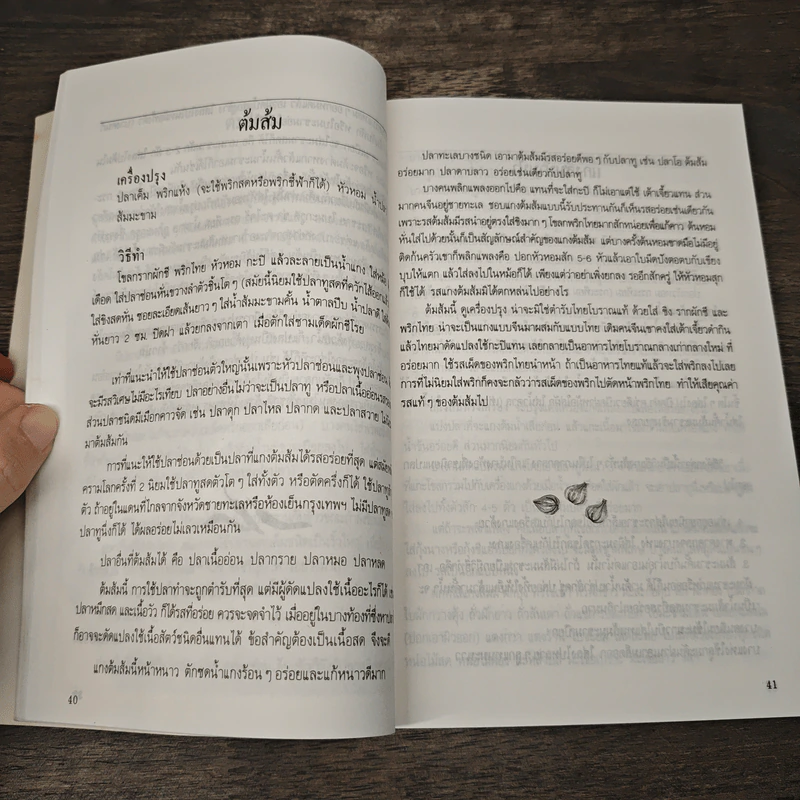 ต้มส้ม
เครื่องปรุง
ปลาเค็ม พริกแห้ง (จะใช้พริกสดหรือพริกชี้ฟ้าก็ได้) หัวหอม
ส้มมะขาม
วิธีทำ
โขลกรากผักชี พริกไทย หัวหอม กะปิ แล้วละลายเป็นน้ำแกง ใส่
เดือด ใส่ปลาช่อนหั่นขวางลำตัวชิ้นโต ๆ (สมัยนี้นิยมใช้ปลาทูสดที่ควักไส้ออก
ใส่ขิงสดหั่น ซอยละเอียดเส้นยาว ๆ ใส่น้ำส้มมะขามคั้น น้ำตาลปีบ น้ำปลาดี
หั่นยาว 2 ซม. ปิดฝา แล้วยกลงจากเตา เมื่อตักใส่ชามเด็ดผักชีโรย
เท่าที่แนะนำให้ใช้ปลาช่อนตัวใหญ่นั้นเพราะหัวปลาช่อนและพุงปลาช่อน
จะมีรสวิเศษไม่มีอะไรเทียบ ปลาอย่างอื่นไม่ว่าจะเป็นปลาทู หรือปลาเนื้ออ่อน
ส่วนปลาชนิดมีเมือกคาวจัด เช่น ปลาดุก ปลาไหล ปลากด และปลาสวาย
มาต้มส้มกัน
การที่แนะให้ใช้ปลาช่อนด้วยเป็นปลาที่แกงต้มส้มได้รสอร่อยที่สุด
ครามโลกครั้งที่ 2 นิยมใช้ปลาทูสดตัวโต ๆ ใส่ทั้งตัว หรือตัดครึ่งก็ได้
ตัว ถ้าอยู่ในแดนที่ไกลจากจังหวัดชายทะเลหรือห้องเย็นกรุงเทพฯ ไม่มีปลาทู
ปลาทูนึ่งก็ได้ ได้ผลอร่อยไม่เลวเหมือนกัน
ปลาอื่นที่ต้มส้มได้ คือ ปลาเนื้ออ่อน ปลากราย ปลาหมอ ปลาหลด
ต้มส้มนี้ การใช้ปลาทำจะถูกตำรับที่สุด แต่มีผู้ดัดแปลงใช้เนื้ออะไรก็ได้
ปลาหมึกสด และเนื้อวัว ก็ได้รสที่อร่อย ควรจะจดจำไว้ เมื่ออยู่ในบางท้องที่ซึ่งหา
ก็อาจจะดัดแปลงใช้เนื้อสัตว์ชนิดอื่นแทนได้ ข้อสำคัญต้องเป็นเนื้อสด
แกงต้มส้มนี้หน้าหนาว ตักซดน้ำแกงร้อน ๆ อร่อยและแก้หนาวดีมาก
40
ปลาทะเลบางชนิด เอามาต้มส้มมีรสอร่อยดีพอ ๆ กับปลาทู เช่น ปลาโอ ต้มส้ม
อร่อยมาก ปลาดาบลาว อร่อยเช่นเดียวกับปลาทู
บางคนพลิกแพลงออกไปคือ แทนที่จะใส่กะปิ ก็ไม่เอาแต่ใช้ เต้าเจี้ยวแทน ส่วน
มากคนจีนอยู่ชายทะเล ชอบแกงต้มส้มแบบนี้รับประทานกันก็เห็นรสอร่อยเช่นเดียวกัน
เพราะรสต้มส้มมีรสน่าอยู่ตรงใส่ขิงมาก ๆ โขลกพริกไทยมากสักหน่อยเพื่อแก้คาว ต้นหอม
หั่นใส่ไปด้วยนั้นก็เป็นสัญลักษณ์สำคัญของแกงต้มส้ม แต่บางครั้งต้นหอมขาดมือไม่มีอยู่
ติดก้นครัวเขาก็พลิกแพลงคือ ปอกหัวหอมสัก 5-6 หัวแล้วเอาใบมีดบังตอตบกับเขียง
บุบให้แตก แล้วใส่ลงไปในหม้อก็ได้ เพียงแต่ว่าอย่าเพิ่งยกลง รออีกสักครู่ ให้หัวหอมสุก
ก็ใช้ได้ รสแกงต้มส้มมิได้ตกหล่นไปอย่างไร
ต้มส้มนี้ ดูเครื่องปรุง น่าจะมิใช่ตำรับไทยโบราณแท้ ด้วยใส่ ขิง รากผักชี และ
พริกไทย น่าจะเป็นแกงแบบจีนมาผสมกับแบบไทย เดิมคนจีนเขาคงใส่เต้าเจี้ยวดำกิน
แล้วไทยมาดัดแปลงใช้กะปิแทน เลยกลายเป็นอาหารไทยโบราณกลางเก่ากลางใหม่ ที่
อร่อยมาก ใช้รสเผ็ดของพริกไทยนำหน้า ถ้าเป็นอาหารไทยแท้แล้วจะใส่พริกลงไปเลย
การที่ไม่นิยมใส่พริกก็คงจะกลัวว่ารสเผ็ดของพริกไปตัดหน้าพริกไทย ทำให้เสียคุณค่า
รสแท้ ๆ ของต้มส้มไป
41